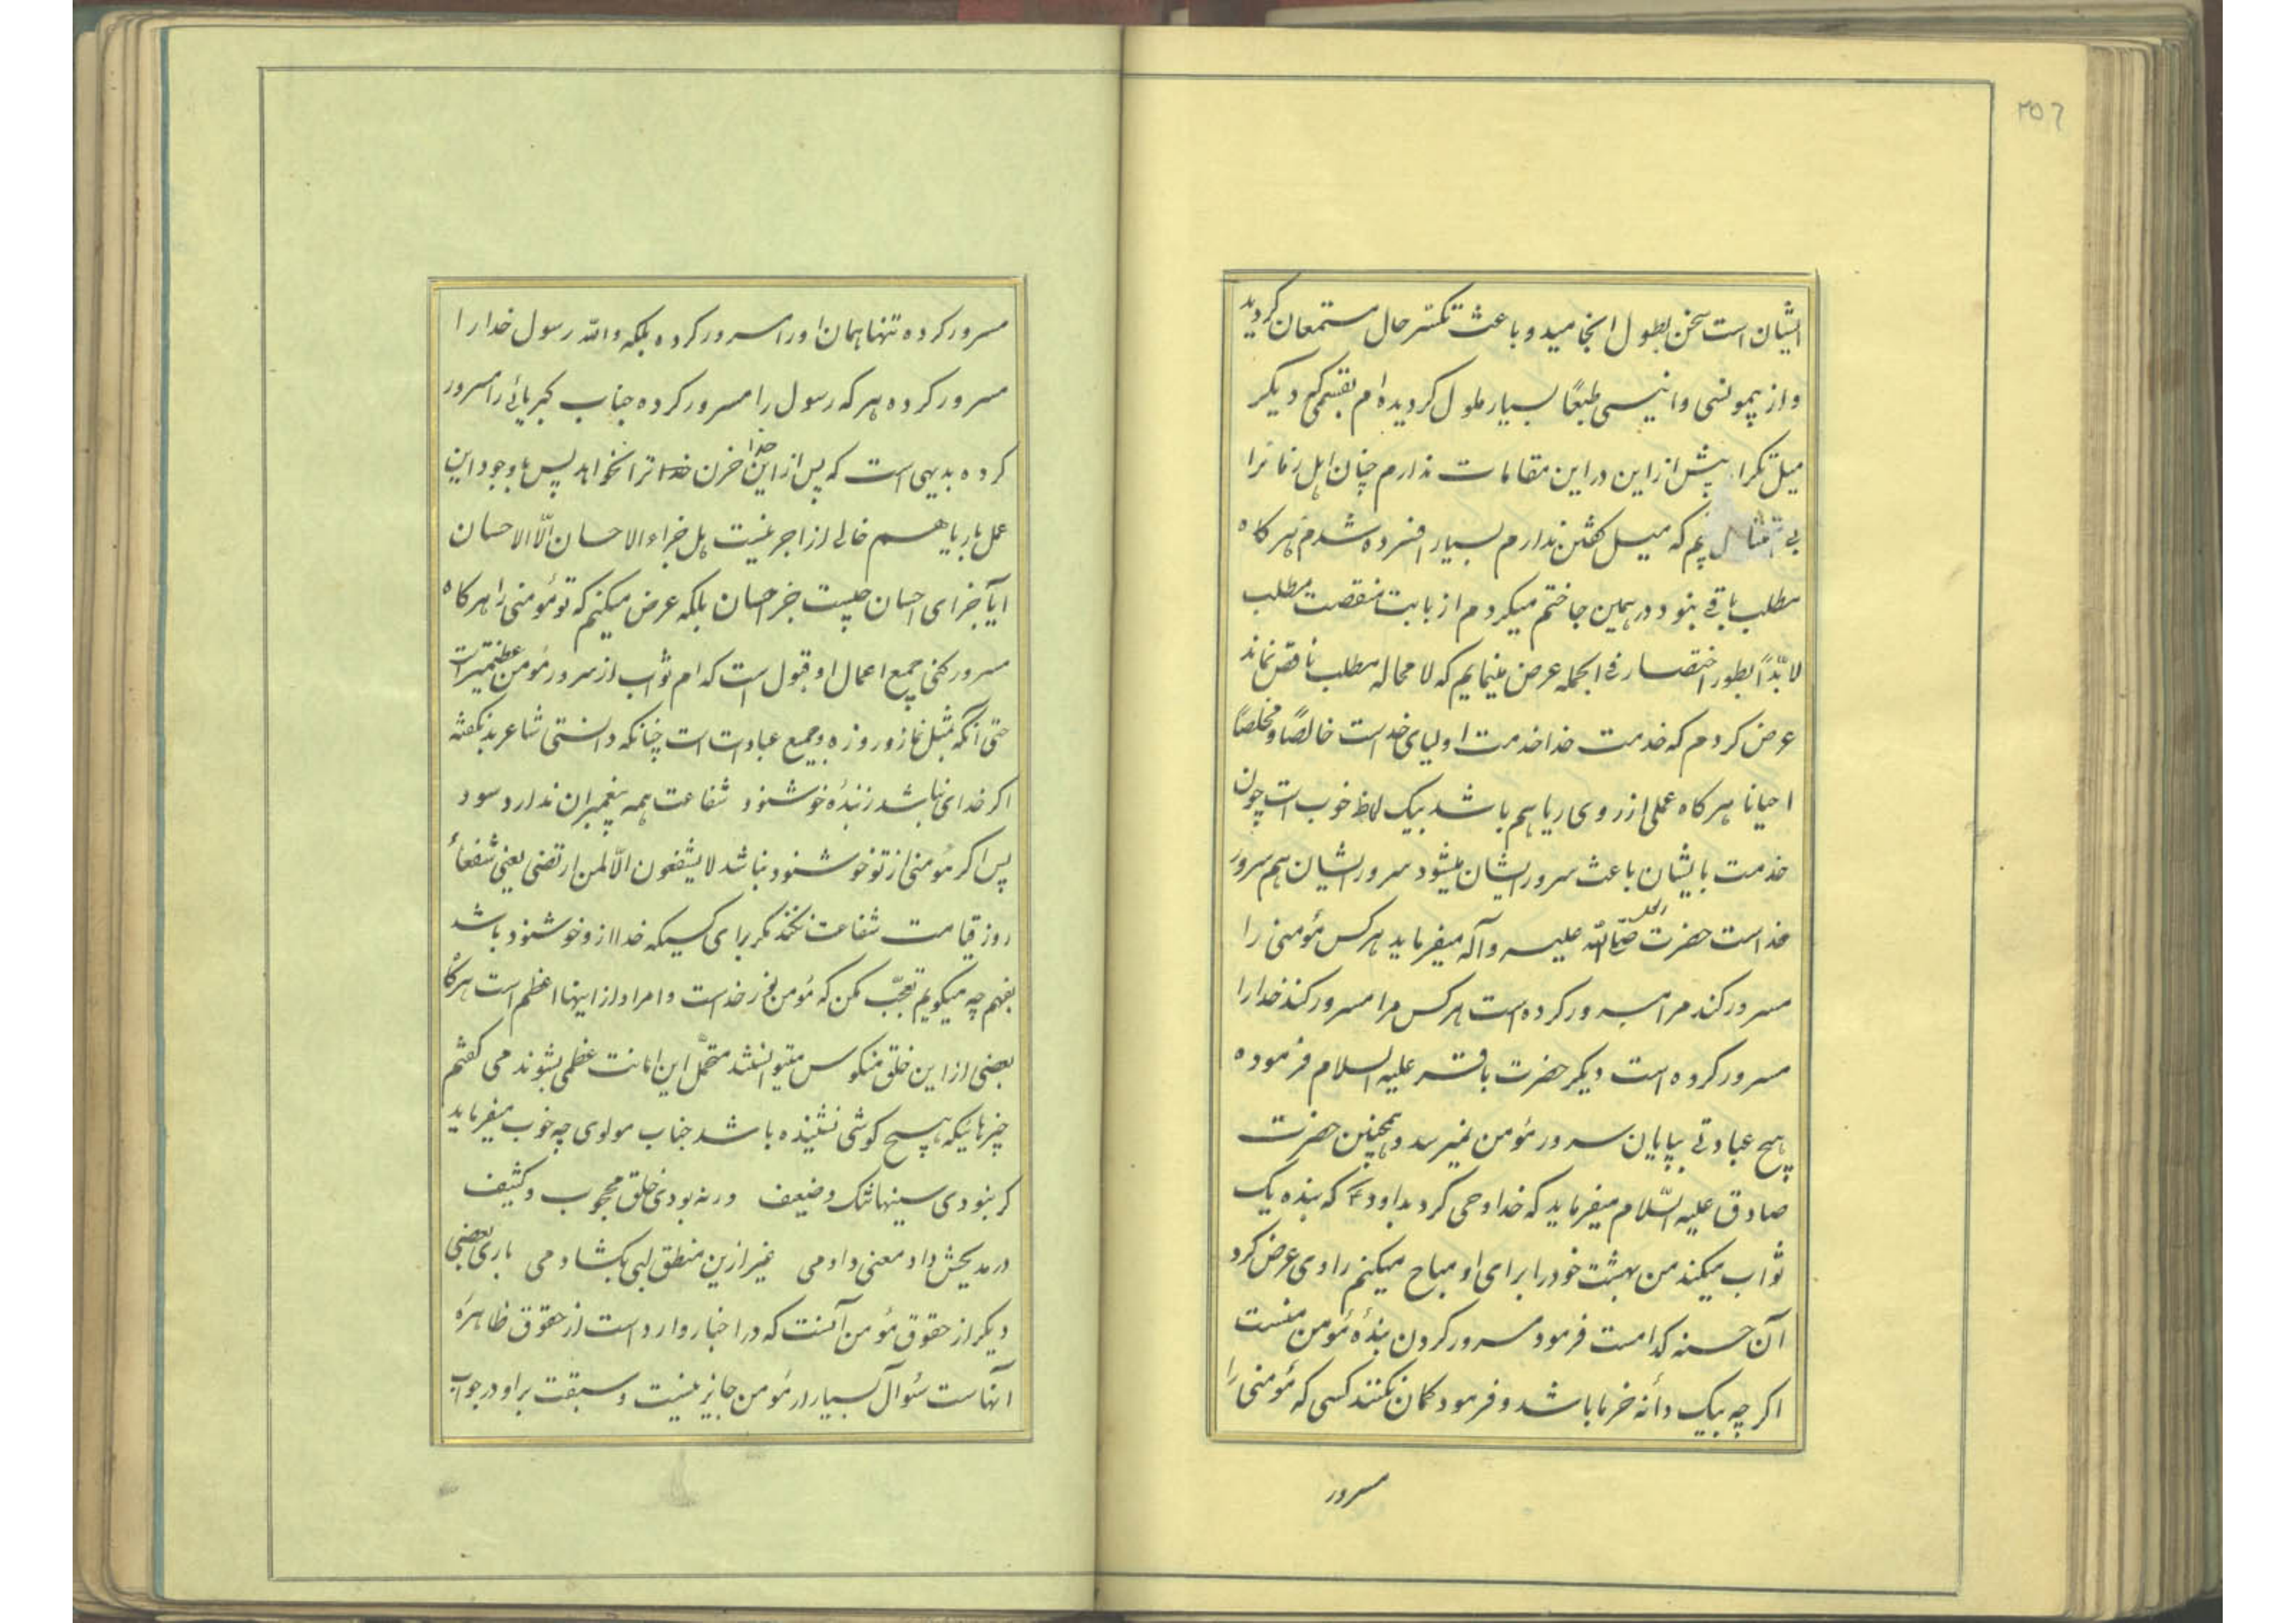 ۳۵۶
ایشان است سخن بطول انجامید و باعث تکسّر حال مستمعان گردید
و از بیمونسی و انیسی طبعًا بسیار ملول گردیده‌ام بقسمی که دیگر
میل تکرار بیش از این در این مقامات ندارم چنان اهل زمانرا
بی یم که میل گفتن ندارم بسیار افسرده شدم هرگاه
مطلب باقی نبود در همین جا ختم میکردم از بابت منقصت مطلب
لابدّاً بطور اختصار فی الجمله عرض مینمایم که لامحاله مطلب ناقص نماند
عرض کردم که خدمت خدا خدمت اولیای خداست خالصًا و مخلصًا
احیانا هرگاه عملی از روی ریا هم باشد بیک لحاظ خوب است چون
خدمت بایشان باعث سرور ایشان میشود سرور ایشان هم سرور
خداست حضرت رسول صلی الله علیه و آله میفرماید هرکس مؤمنی را
مسرور کند مرا مسرور کرده است هرکس مرا مسرور کند خدا را
مسرور کرده است دیگر حضرت باقر علیه السلام فرموده
هیچ عبادتی بپایان سرور مؤمن نمیرسد و همچنین حضرت
صادق علیه السّلام میفرماید که خدا وحی کرد بداود ع که بنده یک
ثواب میکند من بهشت خود را برای او مباح میکنم راوی عرض کرد
آن حسنه کدامست فرمود مسرور کردن بندهٔ مؤمن منست
اگر چه بیک دانه خرما باشد و فرمود گمان نکنند کسی که مؤمنی را
مسرور
مسرور کرده تنها همان او را مسرور کرده بلکه والله رسول خدا را
مسرور کرده هر که رسول را مسرور کرده جناب کبریائی را مسرور
کرده بدیهی است که پس از این خدا حزن ترا نخواهد پس با وجود این
عمل با ریا هم خالی از اجر نیست هل جزاء الاحسان الّا الاحسان
ایا جزای احسان چیست جز احسان بلکه عرض میکنم که تو مؤمنی را هرگاه
مسرور کنی جمیع اعمال او قبول است کدام ثواب از سرور مؤمن عظیمتر است
حتی آنکه مثل نماز و روزه و جمیع عبادات است چنانکه دانستی شاعر بد نگفته
اگر خدای نباشد ز بندهٔ خوشنود شفاعت همه پیغمبران ندارد سود
پس اگر مؤمنی از تو خوشنود نباشد لا یشفعون الّا لمن ارتضی یعنی شفعاء
روز قیامت شفاعت نکنند مگر برای کسیکه خدا از او خوشنود باشد
بفهم چه میگویم تعجّب مکن که مؤمن فخر خداست و امر او از اینها اعظم است هرگاه
بعضی از این خلق منکوس میتوانستند متحمّل این امانت عظمی بشوند می گفتم
چیزهائیکه هیچ گوشی نشنیده باشد جناب مولوی چه خوب میفرماید
گر نبودی سینها تنگ و ضعیف ور نه بودی خلق محجوب و کثیف
در مدیحش داد معنی دادمی غیر ازین منطق لبی بگشادمی باری بعضی
دیگر از حقوق مؤمن آنست که در اخبار وارد است از حقوق ظاهرهٔ
آنهاست سئوال بسیار از مؤمن جایز نیست و سبقت بر او در جواب